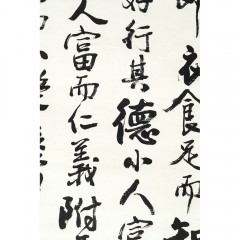 衣食足而知
好行其德小人富
人富而仁義附